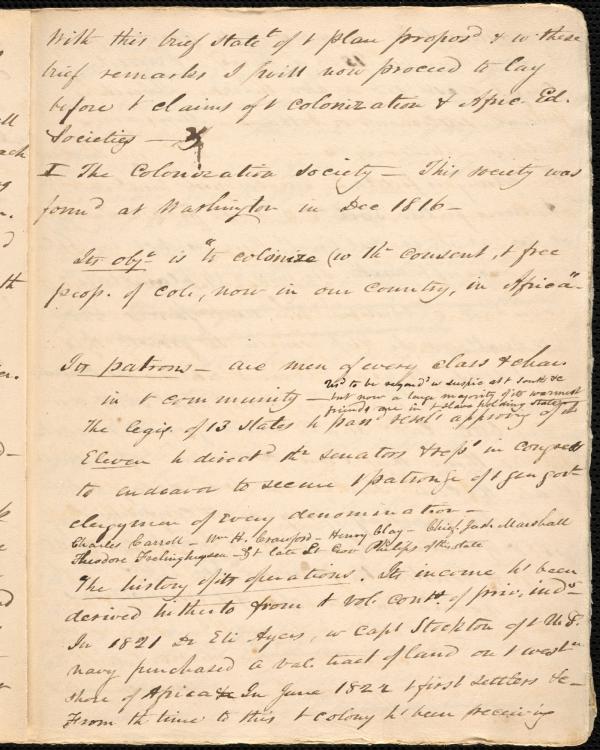 With this brief statt of t plan proposd & w these
brief remarks I will now proceed to lay
before t claims of t colonization & Afric. Ed.
Societies —
I The Colonization Society — This society was
formd at Washington in Dec 1816 —
Its objt is "to colonize (w thr consent, t free
peop. of col., now in our country, in Africa" —
Its patrons — are men of every class & char
in t community —
Usd to be regardd w suspic at t south &c
— but now a large majority of its warmest
friends are in t slave holding states
The legis. of 13 states h passd resol. approvg of it
Eleven h directd thr senators & reps in Congress
to endeavor to secure t patronge of t gen govt
clergymen of every denomination —
Charles Carroll — Wm H. Crawford — Henry Clay — Chief Just Marshall
Theodore Frelinghuysen — & t late Lt Gov Philips of this state
The history of its operations. Its income hs been
derived hitherto from t vol. contr. of priv. inds —
In 1821 Dr Eli Ayres, w Capt Stockton of t U.S.
navy purchased a val. tract of land on t westn
shore of Africa In June 1822 t first settlers &c —
From tht time to this t colony hs been receiving